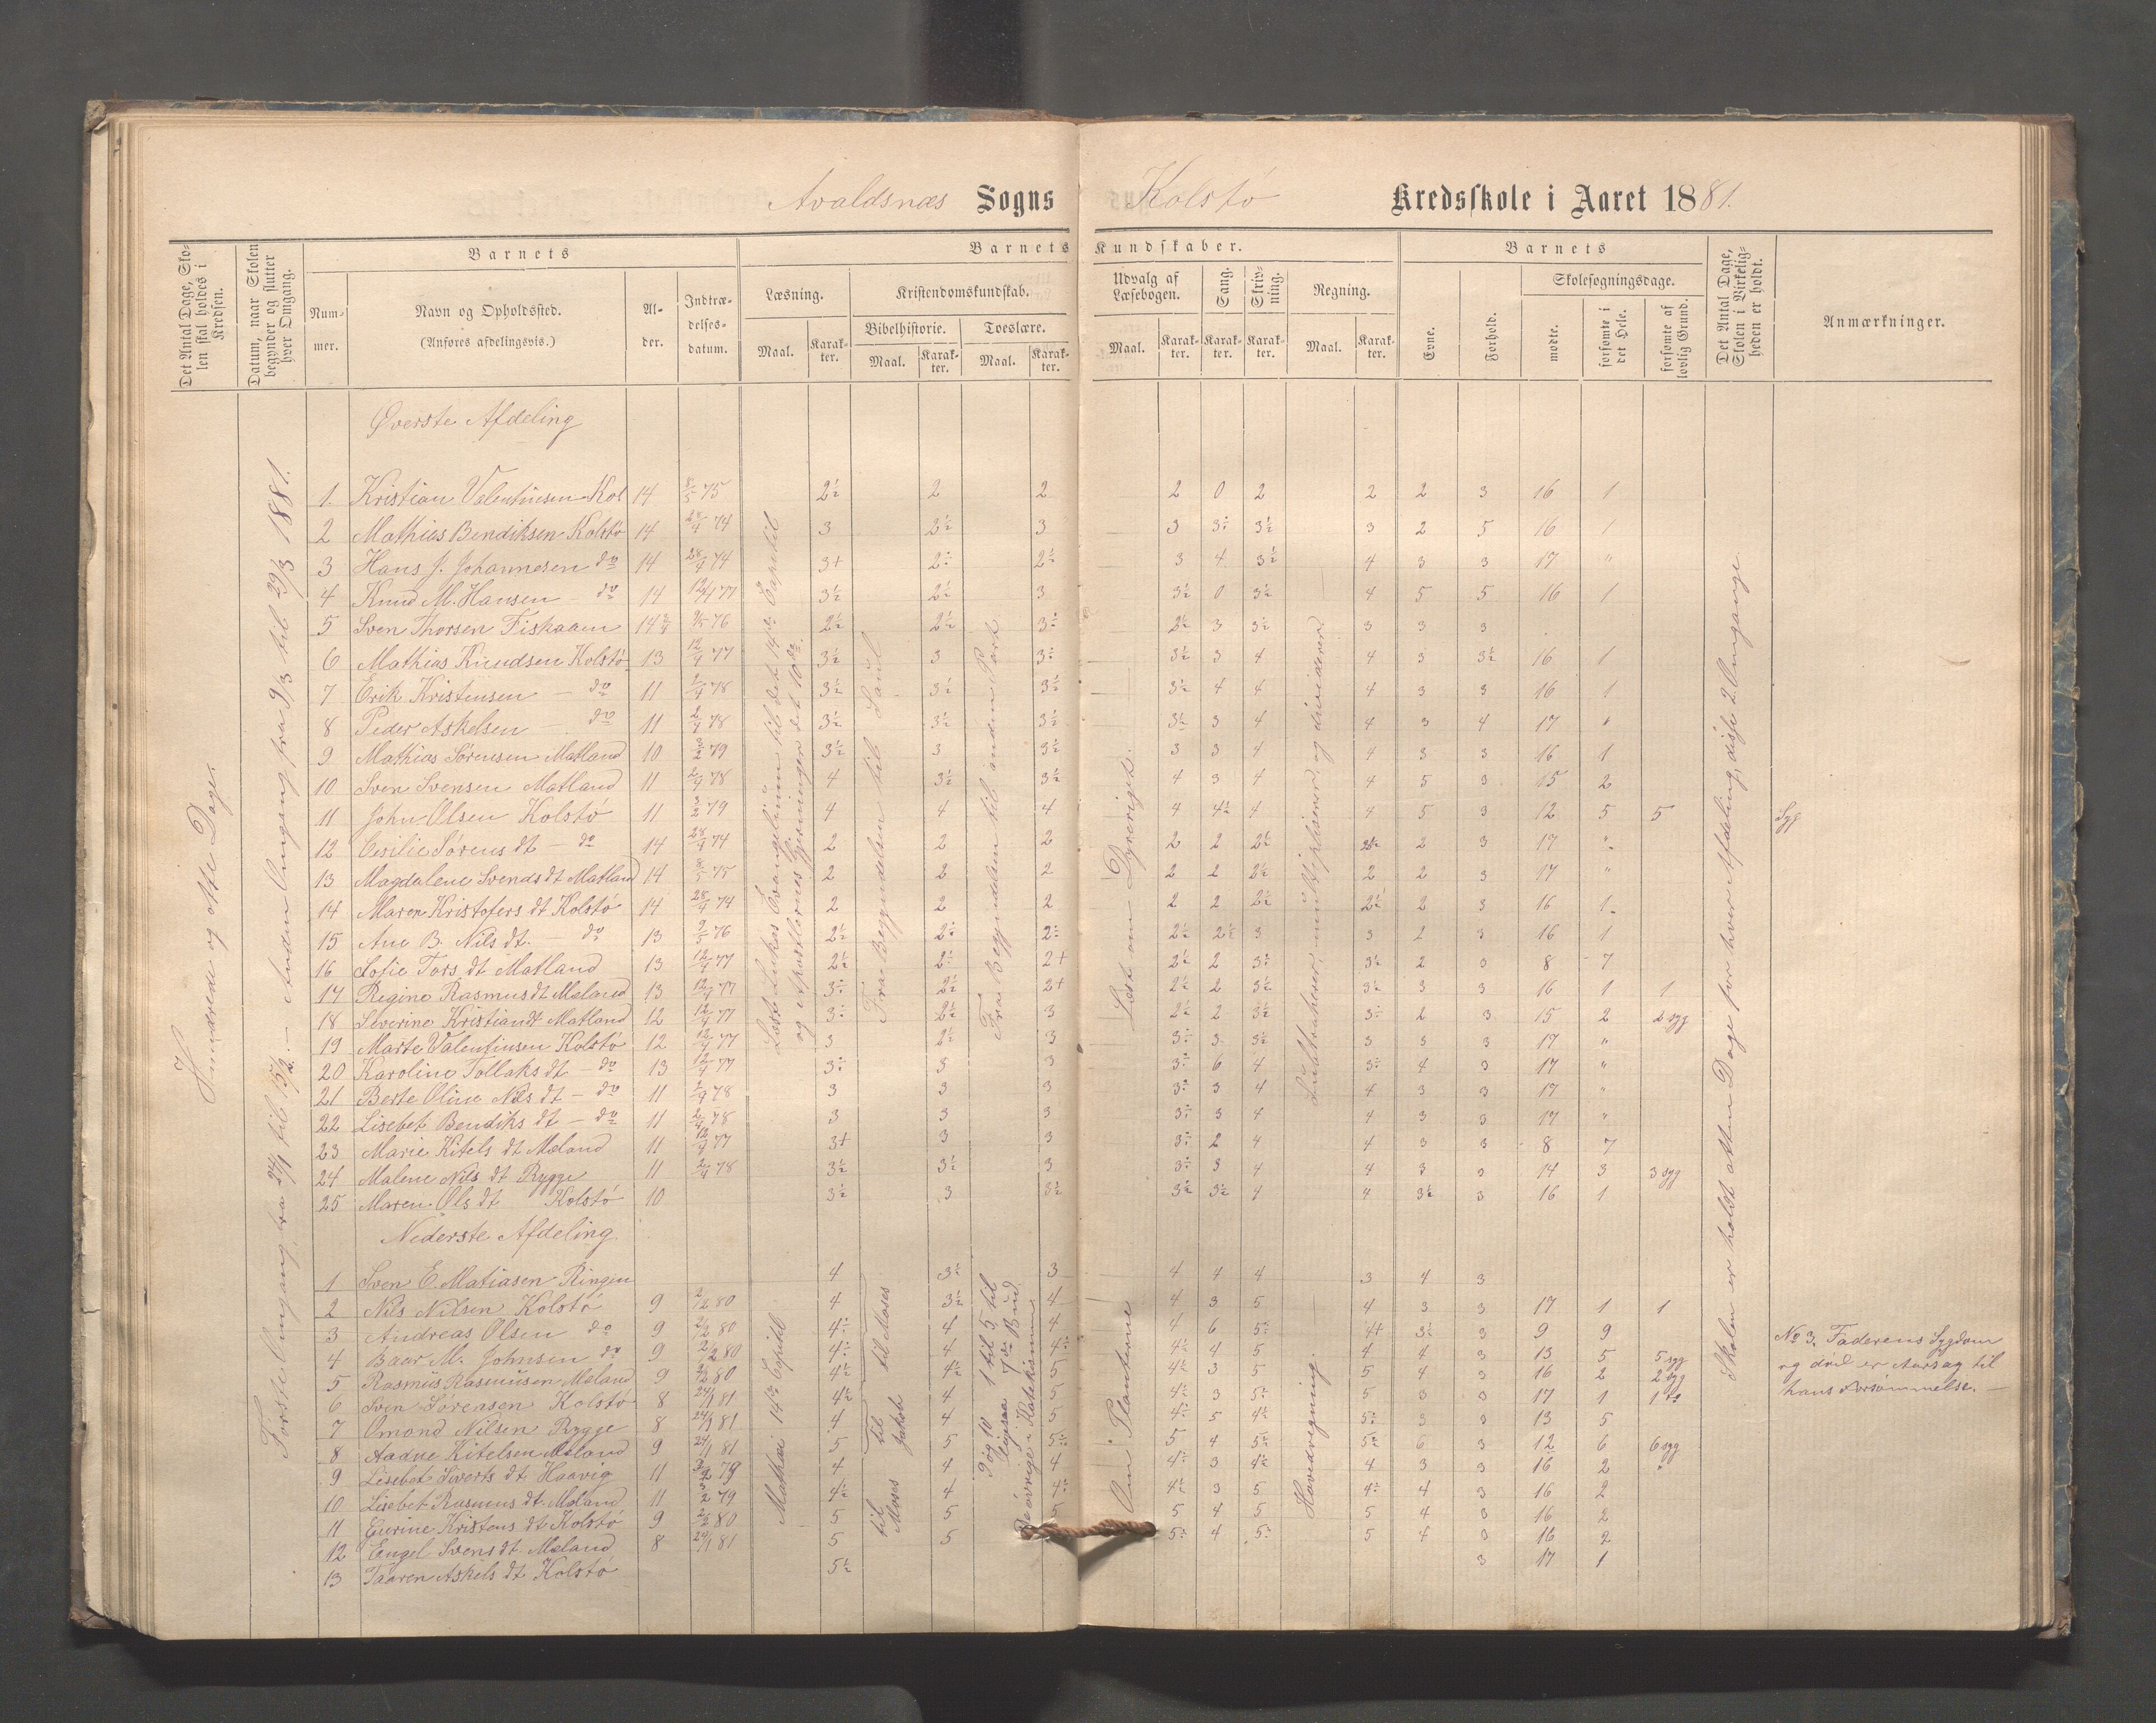 Avaldsnæs Sogns Kolstø Kredsskole i Aaret 1881.
Det Antal Dage, Skolen skal holdes i Kredsen.
Datum, naar Skolen begynder og slutter hver Omgang.
Barnets
Nummer.
Navn og Opholdssted.
(Anføres afdelingsvis.)
Alder.
Indtrædelsesdatum.
Barnets Kundskaber.
Læsning.
Maal.
Karakter.
Kristendomskundskab.
Bibelhistorie.
Maal.
Karakter.
Troeslære.
Maal.
Karakter.
Udvalg af Læsebogen.
Maal.
Karakter.
Sang.
Karakter.
Skrivning.
Karakter.
Regning.
Maal.
Karakter.
Barnets
Evne.
Forhold.
Skolesøgningsdage.
mødte.
forsømte i det Hele.
forsømte af lovlig Grund.
Det Antal Dage, Skolen i Virkeligheden er holdt.
Anmærkninger.
Hundrede og otte Dage.
Første Omgang fra 24/1 til 15/2. — Anden Omgang fra 9/3 til 29/3 1881.
Læst Lukas Evangelium til det 14de Capitel
og Apostlernes Gjerninger det 10de
Fra Begyndelsen til Saul
Fra Begyndelsen til anden Part
Læst om Dyreriget.
Subtraherer, multiplicerer og dividerer
Skolen er holdt atten Dage for hver Afdeling, disse 2 Omgange
Øverste Afdeling
1. Kristian Valentinsen Kol 14 8/5 75 2½ 2 2 2 0 2 2 2 3 16 1
2 Mathias Bendiksen Kolstø 14 28/4 74 3 3½ 3 3 3÷ 3½ 3 2 5 16 1
3 Hans J. Johannesen do 14 28/4 74 3+ 2÷ 2½ 3 4 3½ 4 3 3 17 "
4 Knud M. Hansen – do 14 12/4 77 3½ 2½ 3 3½ 0 3½ 4 5 5 16 1
5 Sven Thorsen Fiskaaen 9/5 76 2½ 2½ 3÷ 2½ 3 3½ 3 3 3
6 Mathias Knudsen Kolstø 13 12/4 77 3½ 3 3÷ 3½ 3 4 4 3 3½ 16 1
7 Erik Kristensen – do 11 2/4 78 3½ 3½ 3½ 3½ 4 4 4 3 3 16 1
8 Peder Askelsen – do 11 2/4 78 3½ 3½ 3½ 3½ 3 4 4 3 4 17 "
9 Mathias Sørensen Matland 10 3/2 79 3½ 3 3½ 3 3 4 4 3 3 16 1
10 Sven Svensen Matland 11 2/4 78 4 3½ 3½ 4 3 4 4 5 3 15 2
11 John Olsen Kolstø 11 3/2 79 4 4 4 4 4½ 4 4 5 3 12 5 5 Syg
12 Cesilie Sørens dt – do 14 28/4 74 2 2 2 2 2 2½ 2½ 2 3 17 "
13 Magdalene Svends dt Matland 14 8/5 75 2 2 2 2 2 2½ 2 2 3 17 "
14 Maren Kristofers dt Kolstø 14 28/4 74 2 2 2 2 2 2½ 2½ 2 3 16 1
15 Ane B. Nils dt. – do 13 9/5 76 2½ 2÷ 2÷ 2½ 2½ 3 3 2 3 16 1
16 Sofie Tors dt Matland 13 12/4 77 2½ 2½ 2+ 2½ 2 3÷ 3½ 2 3 8 7
17 Regine Rasmus dt Meland 13 12/4 77 3÷ 2½ 2+ 2½ 2 3½ 3½ 3 3 16 1 1
18 Severine Kristian dt Matland 12 12/4 77 3÷ 2½ 3 2½ 2 3½ 3÷ 2 3 15 2 2 syg
19 Marte Valentinsen Kolstø 12 12/4 77 3 2½ 3 3÷ 3 3½ 3 3 3 17 "
20 Karoline Tollaks dt – do 13 12/4 77 3÷ 3 3 3÷ 6 4 3÷ 4 3 17 "
21 Berte Oline Nils dt – do 11 2/4 78 3 3 3 3÷ 3 4 4 3 3 17 "
22 Lisebet Bendiks dt – do 11 2/4 78 3 3 3 3÷ 3 4 4 3 3 17 "
23 Marie Kitels dt Meland 11 12/4 77 3+ 3 3 3÷ 2 4 4 3 3 8 7
24 Malene Nils dt Rygge 11 2/4 78 3½ 3½ 3 3÷ 3 4 4 3 3 14 3 3 syg
25 Maren Ols dt Kolstø 10 3½ 3 3½ 3½ 3½ 4 4 3½ 3 16 1
Nederste Afdeling
Mathæi 14de Capitel
til Moses
til Jakob
til Moses
1 til 5, til 7de Bud
9 og 10 ligesaa
De øvrige i Katekismus
Om Planterne
Hovedregning.
1 Sven E. Matiasen Ringen 4 3÷ 3 4 4 4 3 4 3
2 Nils Nilsen Kolstø 9 2/2 80 4 3½ 4 4 3 5 4 3 3 17 1 1
3 Andreas Olsen do 9 2/2 80 4÷ 4 4 4 6 5÷ 4+ 3½ 3 9 9
4 Baar M. Johnsen do 9 2/2 80 4÷ 4 4÷ 4½ 4 5 4 4 3 13 5 5 syg
5 Rasmus Rasmusen Meland 9 2/2 80 4½ 4½ 5 4½ 3 5 5 4 3 16 2 2 syg
6 Sven Sørensen Kolstø 8 24/1 81 4½ 4 5 4½ 3 5÷ 5 3 3 17 1
7 Omond Nilsen Rygge 8 24/1 81 4 4 5 4÷ 5 4½ 5÷ 3 3 13 5
8 Aadne Kitelsen Meland 9 24/1 81 5 5 5÷ 5 4 5÷ 5÷ 6 3 12 6 6 syg
9 Lisebet Siverts dt Haavig 11 3/2 79 4 4 4 4÷ 3 4½ 4 3 3 16 2 "
10 Lisebet Rasmus dt. Meland 11 3/2 79 4½ 4 4÷ 4½ 3 5 4÷ 4 3 16 2
11 Eurine Kristens dt Kolstø 9 2/2 80 5 5 5 5 4 5 5 4 3 16 2
12 Engel Svens dt Meland 8 24/1 81 5 5 5÷ 4 5÷ 5 4 3 16 2
13 Taaren Askels dt Kolstø 5½ 3 17 1
No 3. Faderens Sygdom
og død er Aarsag til
hans Forsømmelse. —